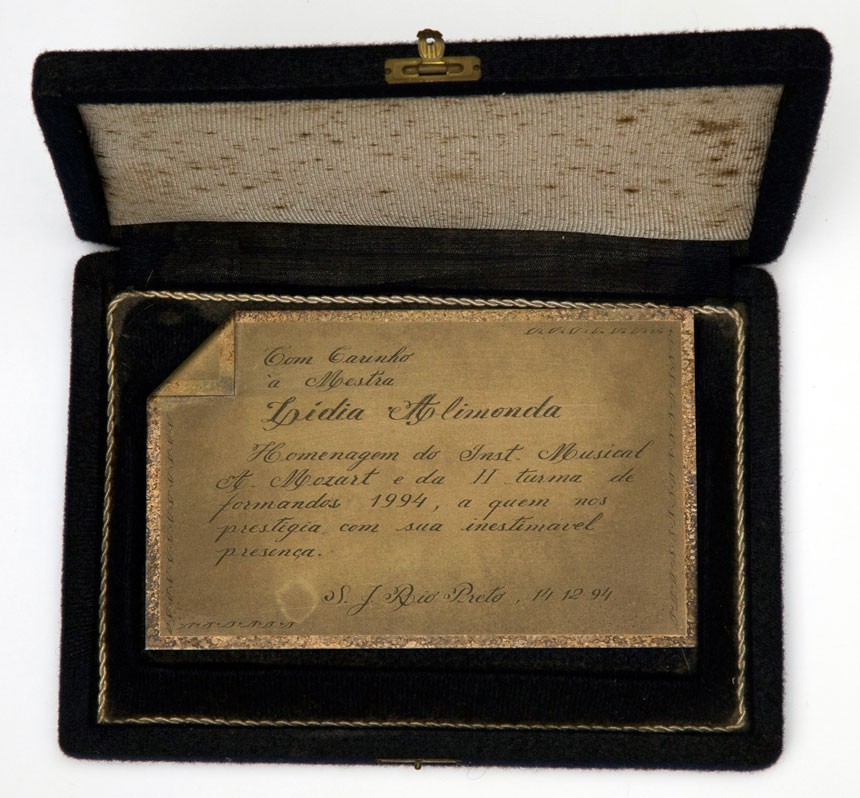 Com Carinho
à Mestra
Lídia Alimonda
Homenagem do Inst. Musical
A. Mozart e da II turma de
formandos 1994, a quem nos
prestigia com sua inestimavel
presença.
S. J. Rio Preto, 14 12 94